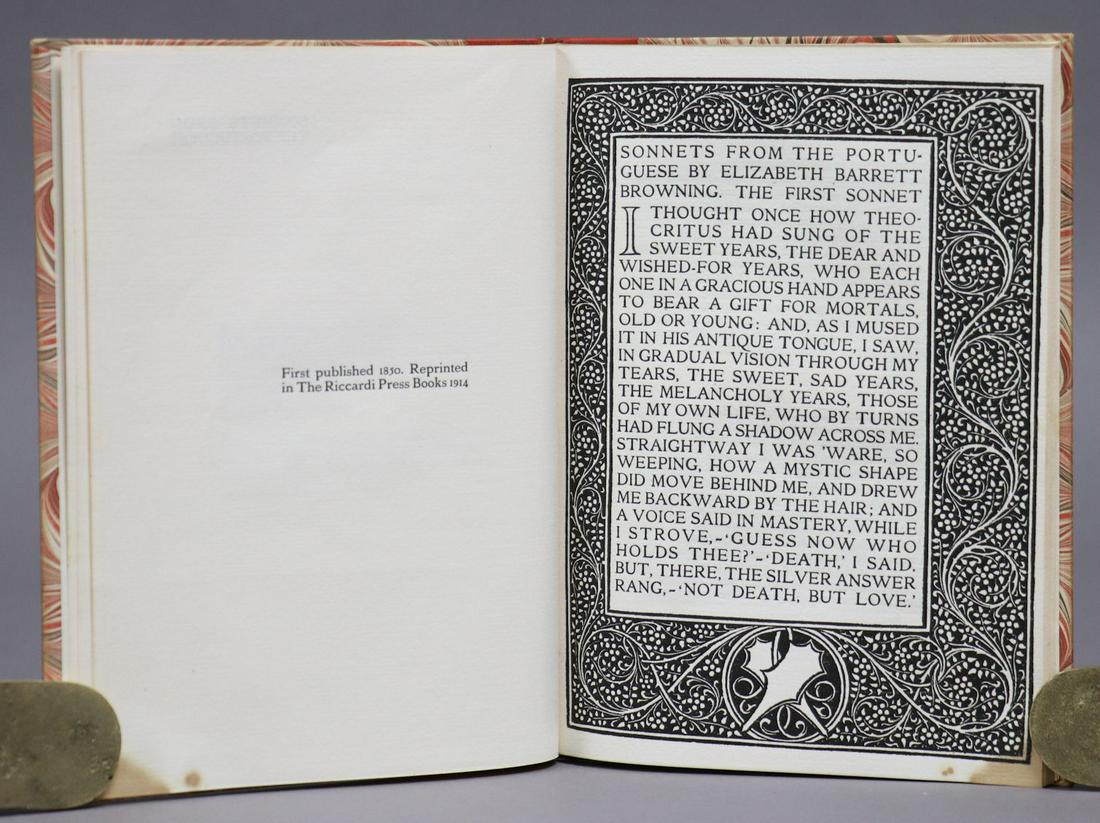 First published 1850. Reprinted
in The Riccardi Press Books 1914
SONNETS FROM THE PORTU-
GUESE BY ELIZABETH BARRETT
BROWNING. THE FIRST SONNET
I THOUGHT ONCE HOW THEO-
CRITUS HAD SUNG OF THE
SWEET YEARS, THE DEAR AND
WISHED-FOR YEARS, WHO EACH
ONE IN A GRACIOUS HAND APPEARS
TO BEAR A GIFT FOR MORTALS,
OLD OR YOUNG: AND, AS I MUSED
IT IN HIS ANTIQUE TONGUE, I SAW,
IN GRADUAL VISION THROUGH MY
TEARS, THE SWEET, SAD YEARS,
THE MELANCHOLY YEARS, THOSE
OF MY OWN LIFE, WHO BY TURNS
HAD FLUNG A SHADOW ACROSS ME.
STRAIGHTWAY I WAS 'WARE, SO
WEEPING, HOW A MYSTIC SHAPE
DID MOVE BEHIND ME, AND DREW
ME BACKWARD BY THE HAIR; AND
A VOICE SAID IN MASTERY, WHILE
I STROVE,–'GUESS NOW WHO
HOLDS THEE?'–'DEATH,' I SAID.
BUT, THERE, THE SILVER ANSWER
RANG,–'NOT DEATH, BUT LOVE.'